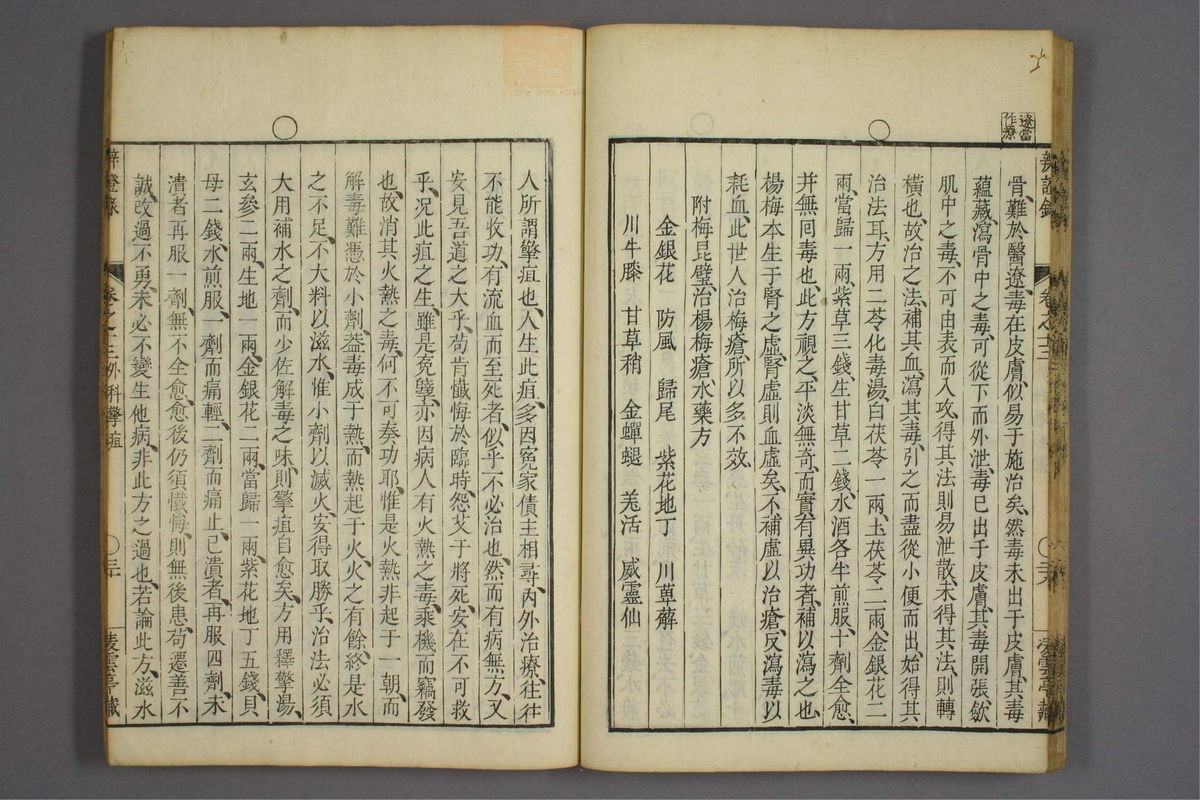 遼當
作療
骨、難於醫遼、毒在皮膚、似易于施治矣、然毒未出于皮膚、其毒
蘊藏、瀉骨中之毒、可從下而外泄、毒已出于皮膚、其毒開張、歛
肌中之毒、不可由表而入攻、得其法則易泄散、未得其法、則轉
橫也、故治之法、補其血、瀉其毒、引之而盡從小便而出、始得其
治法耳、方用二苓化毒湯、白茯苓一兩、土茯苓二兩、金銀花二
兩、當歸一兩、紫草三錢、生甘草二錢、水酒各半煎服、十劑全愈、
并無回毒也、此方視之、平淡無奇、而實有異功者、補以瀉之也、
楊梅本生于腎之虛、腎虛則血虛矣、不補虛以治瘡、反瀉毒以
耗血、此世人治梅瘡、所以多不效、
附梅昆璧治楊梅瘡、水藥方
金銀花 防風 歸尾 紫花地丁 川萆薢
川牛膝 甘草稍 金蟬蛻 羌活 威靈仙
人所謂擎疽也、人生此疽、多因冤家債主相尋、內外治療、往往
不能收功、有流血而至死者、似乎不必治也、然而有病無方、又
安見吾道之大乎、苟肯懺悔於臨時、怨艾于將死、安在不可救
乎、況此疽之生、雖是冤孽、亦因病人有火熱之毒、乘機而竊發
也、故消其火熱之毒、何不可奏功耶、惟是火熱非起于一朝、而
解毒難憑於小劑、葢毒成于熱、而熱起于火、火之有餘、終是水
之不足、不大料以滋水、惟小劑以滅火、安得取勝乎、治法必須
大用補水之劑、而少佐解毒之味、則擎疽自愈矣、方用釋擎湯、
玄參二兩、生地一兩、金銀花二兩、當歸一兩、紫花地丁五錢、貝
母二錢、水煎服、一劑而痛輕、二劑而痛止、已潰者再服四劑、未
潰者再服一劑、無不全愈、愈後仍須懺悔、則無後患、苟遷善不
誠、改過不勇、未必不變生他病、非此方之過也、若論此方、滋水
卷之十三 外科擎疽